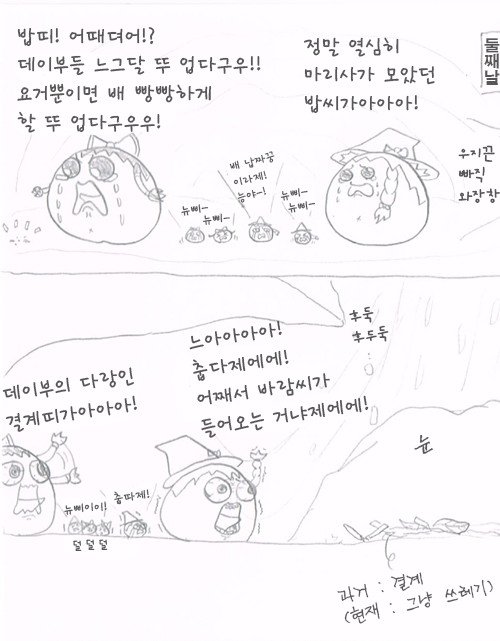 둘째날
밥띠! 어때뎌어!?
데이부들 느그달 뚜 업다구우!!
요거뿐이면 배 빵빵하게
할 뚜 업다구우우!
정말 열심히
마리사가 모았던
밥씨가아아아!
우지끈
빠직
와장창
뉴삐~
뉴삐~
배 납짜꿍
이라제!
능야~!
뉴삐~
뉴삐~
후둑
후두둑
느아아아아!
춥다제에에!
어째서 바람씨가
들어오는 거냐제에에!
데이부의 다랑인
결계띠가아아아!
뉴삐이이!
춥따제!
덜 덜 덜
눈
과거 : 결계
(현재 : 그냥 쓰레기)